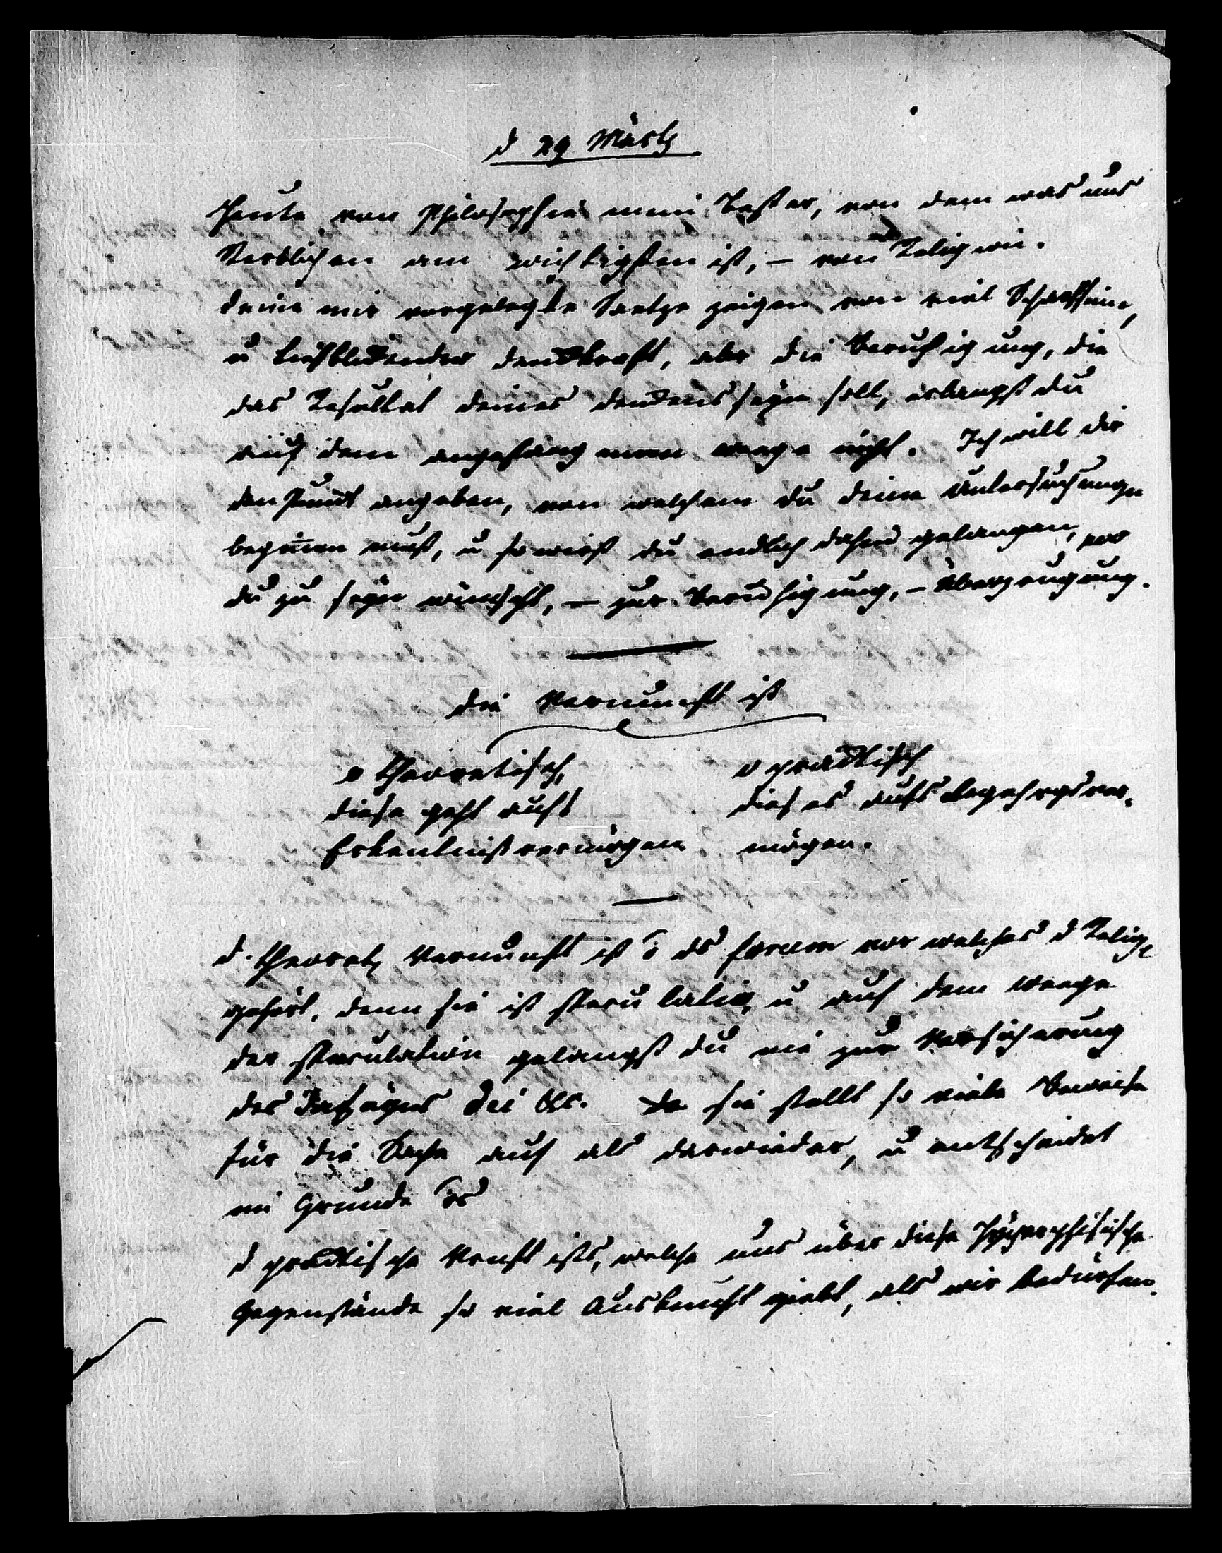 d 29 Märtz
Heute von Philosophie mein Bester, von dem was uns
Sterblichen am wichtigsten ist, – von Religion.
Deine mir vorgelegte Saetze zeigen von viel Scharfsinn,
u denckkraft, aber die Beruhigung, die
das Resultat deines denckens seyn soll, erlangst du
auf dem angefangenen weege nicht. Ich will dir
den Punct angeben, von welchem du deine Untersuchungen
beginnen must, u so wirst du endlich dahin gelangen, wo
du zu seyn wünscht, – zur Beruhigung, – Überzeugung.
die Vernunft ist
theoretisch, practisch
diese geht aufs dieses aufs Begehrgsver-
Erkentnißvermögen mögen.
d. theoret. Vernunft ist ds forum vor welches d Religi
gehört, denn sie ist speculativ, u auf dem weege
der speculation gelangst du nie zur Versicherung
des Daseyns Dei &c. Da sie stellt so viele Beweise
für die Sache auf als darwieder, u entscheidet
im Grunde
d practische Vrnft ists, welche uns über diese Hyperphisische
Gegenstände so viel Auskunft giebt, als wir bedürfen.